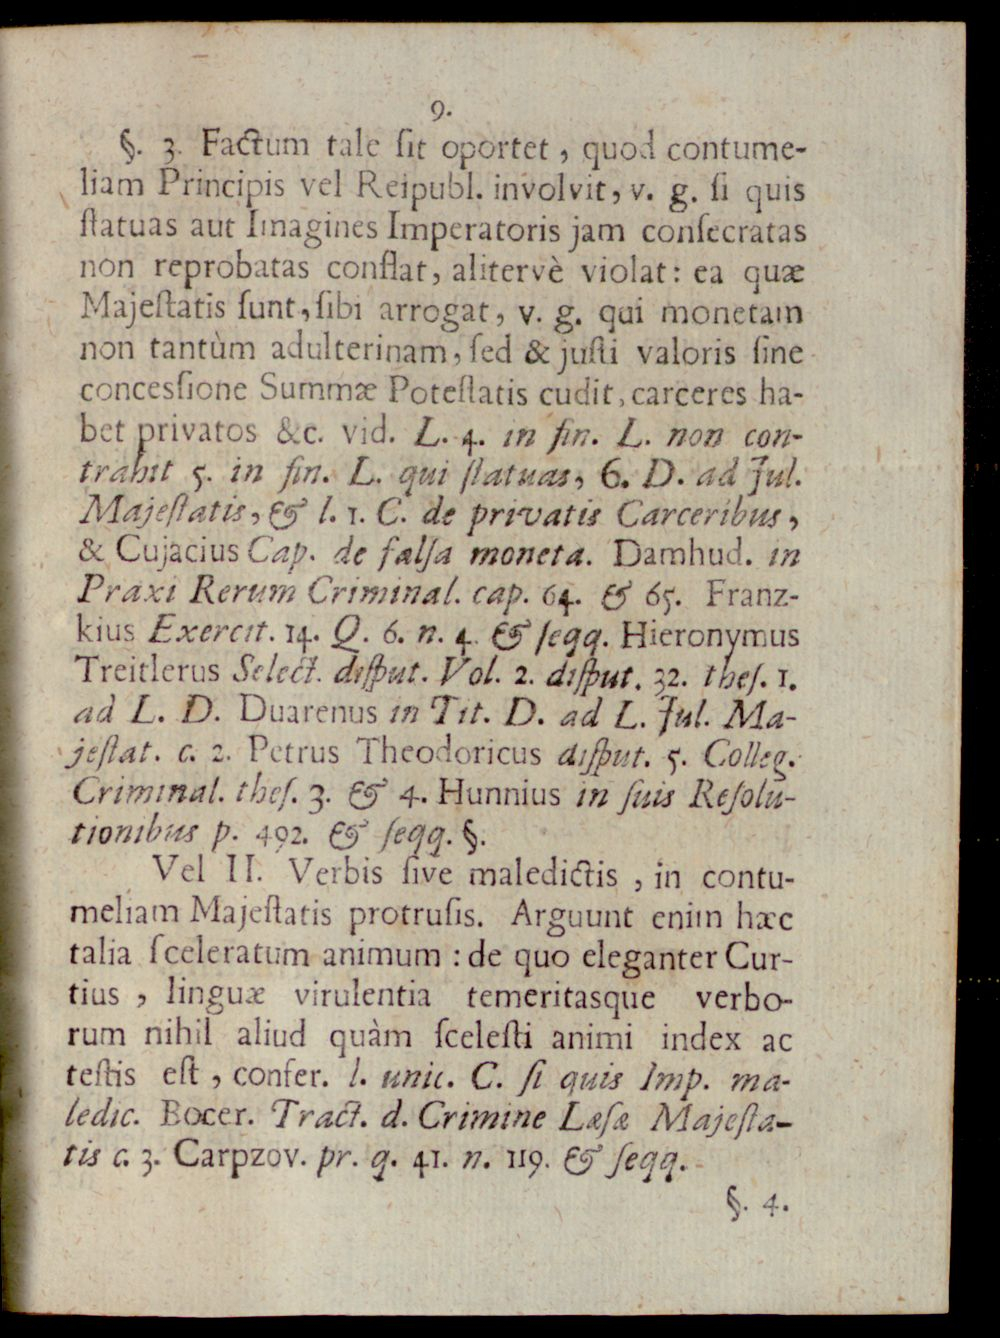 9.
§. 3. Factum tale ſit oportet, quod contume-
liam Principis vel Reipubl. involvit, v. g. ſi quis
ſtatuas aut Imagines Imperatoris jam conſecratas
non reprobatas conflat, alitervè violat: ea quæ
Majeſtatis ſunt, ſibi arrogat, v. g. qui monetam
non tantùm adulterinam, ſed & juſti valoris ſine
conceſſione Summæ Poteſtatis cudit, carceres ha-
bet privatos &c. vid. L. 4. in fin. L. non con-
trahit 5. in fin. L. qui ſtatuas, 6. D. ad Jul.
Majeſtatis, & l. 1. C. de privatis Carceribus,
& Cujacius Cap. de falſa moneta. Damhud. in
Praxi Rerum Criminal. cap. 64. & 65. Franz-
kius Exercit. 14. Q. 6. n. 4. & ſeqq. Hieronymus
Treitlerus Select. diſput. Vol. 2. diſput. 32. theſ. 1.
ad L. D. Duarenus in Tit. D. ad L. Jul. Ma-
jeſtat. c. 2. Petrus Theodoricus diſput. 5. Colleg.
Criminal. theſ. 3. & 4. Hunnius in ſuis Reſolu-
tionibus p. 492. & ſeqq. §.
Vel II. Verbis ſive maledictis, in contu-
meliam Majeſtatis protruſis. Arguunt enim hæc
talia ſceleratum animum: de quo eleganter Cur-
tius, linguæ virulentia temeritasque verbo-
rum nihil aliud quàm ſceleſti animi index ac
teſtis eſt, confer. l. unic. C. ſi quis Imp. ma-
ledic. Bocer. Tract. d. Crimine Læſæ Majeſta-
tis c. 3. Carpzov. pr. q. 41. n. 119. & ſeqq.
§. 4.